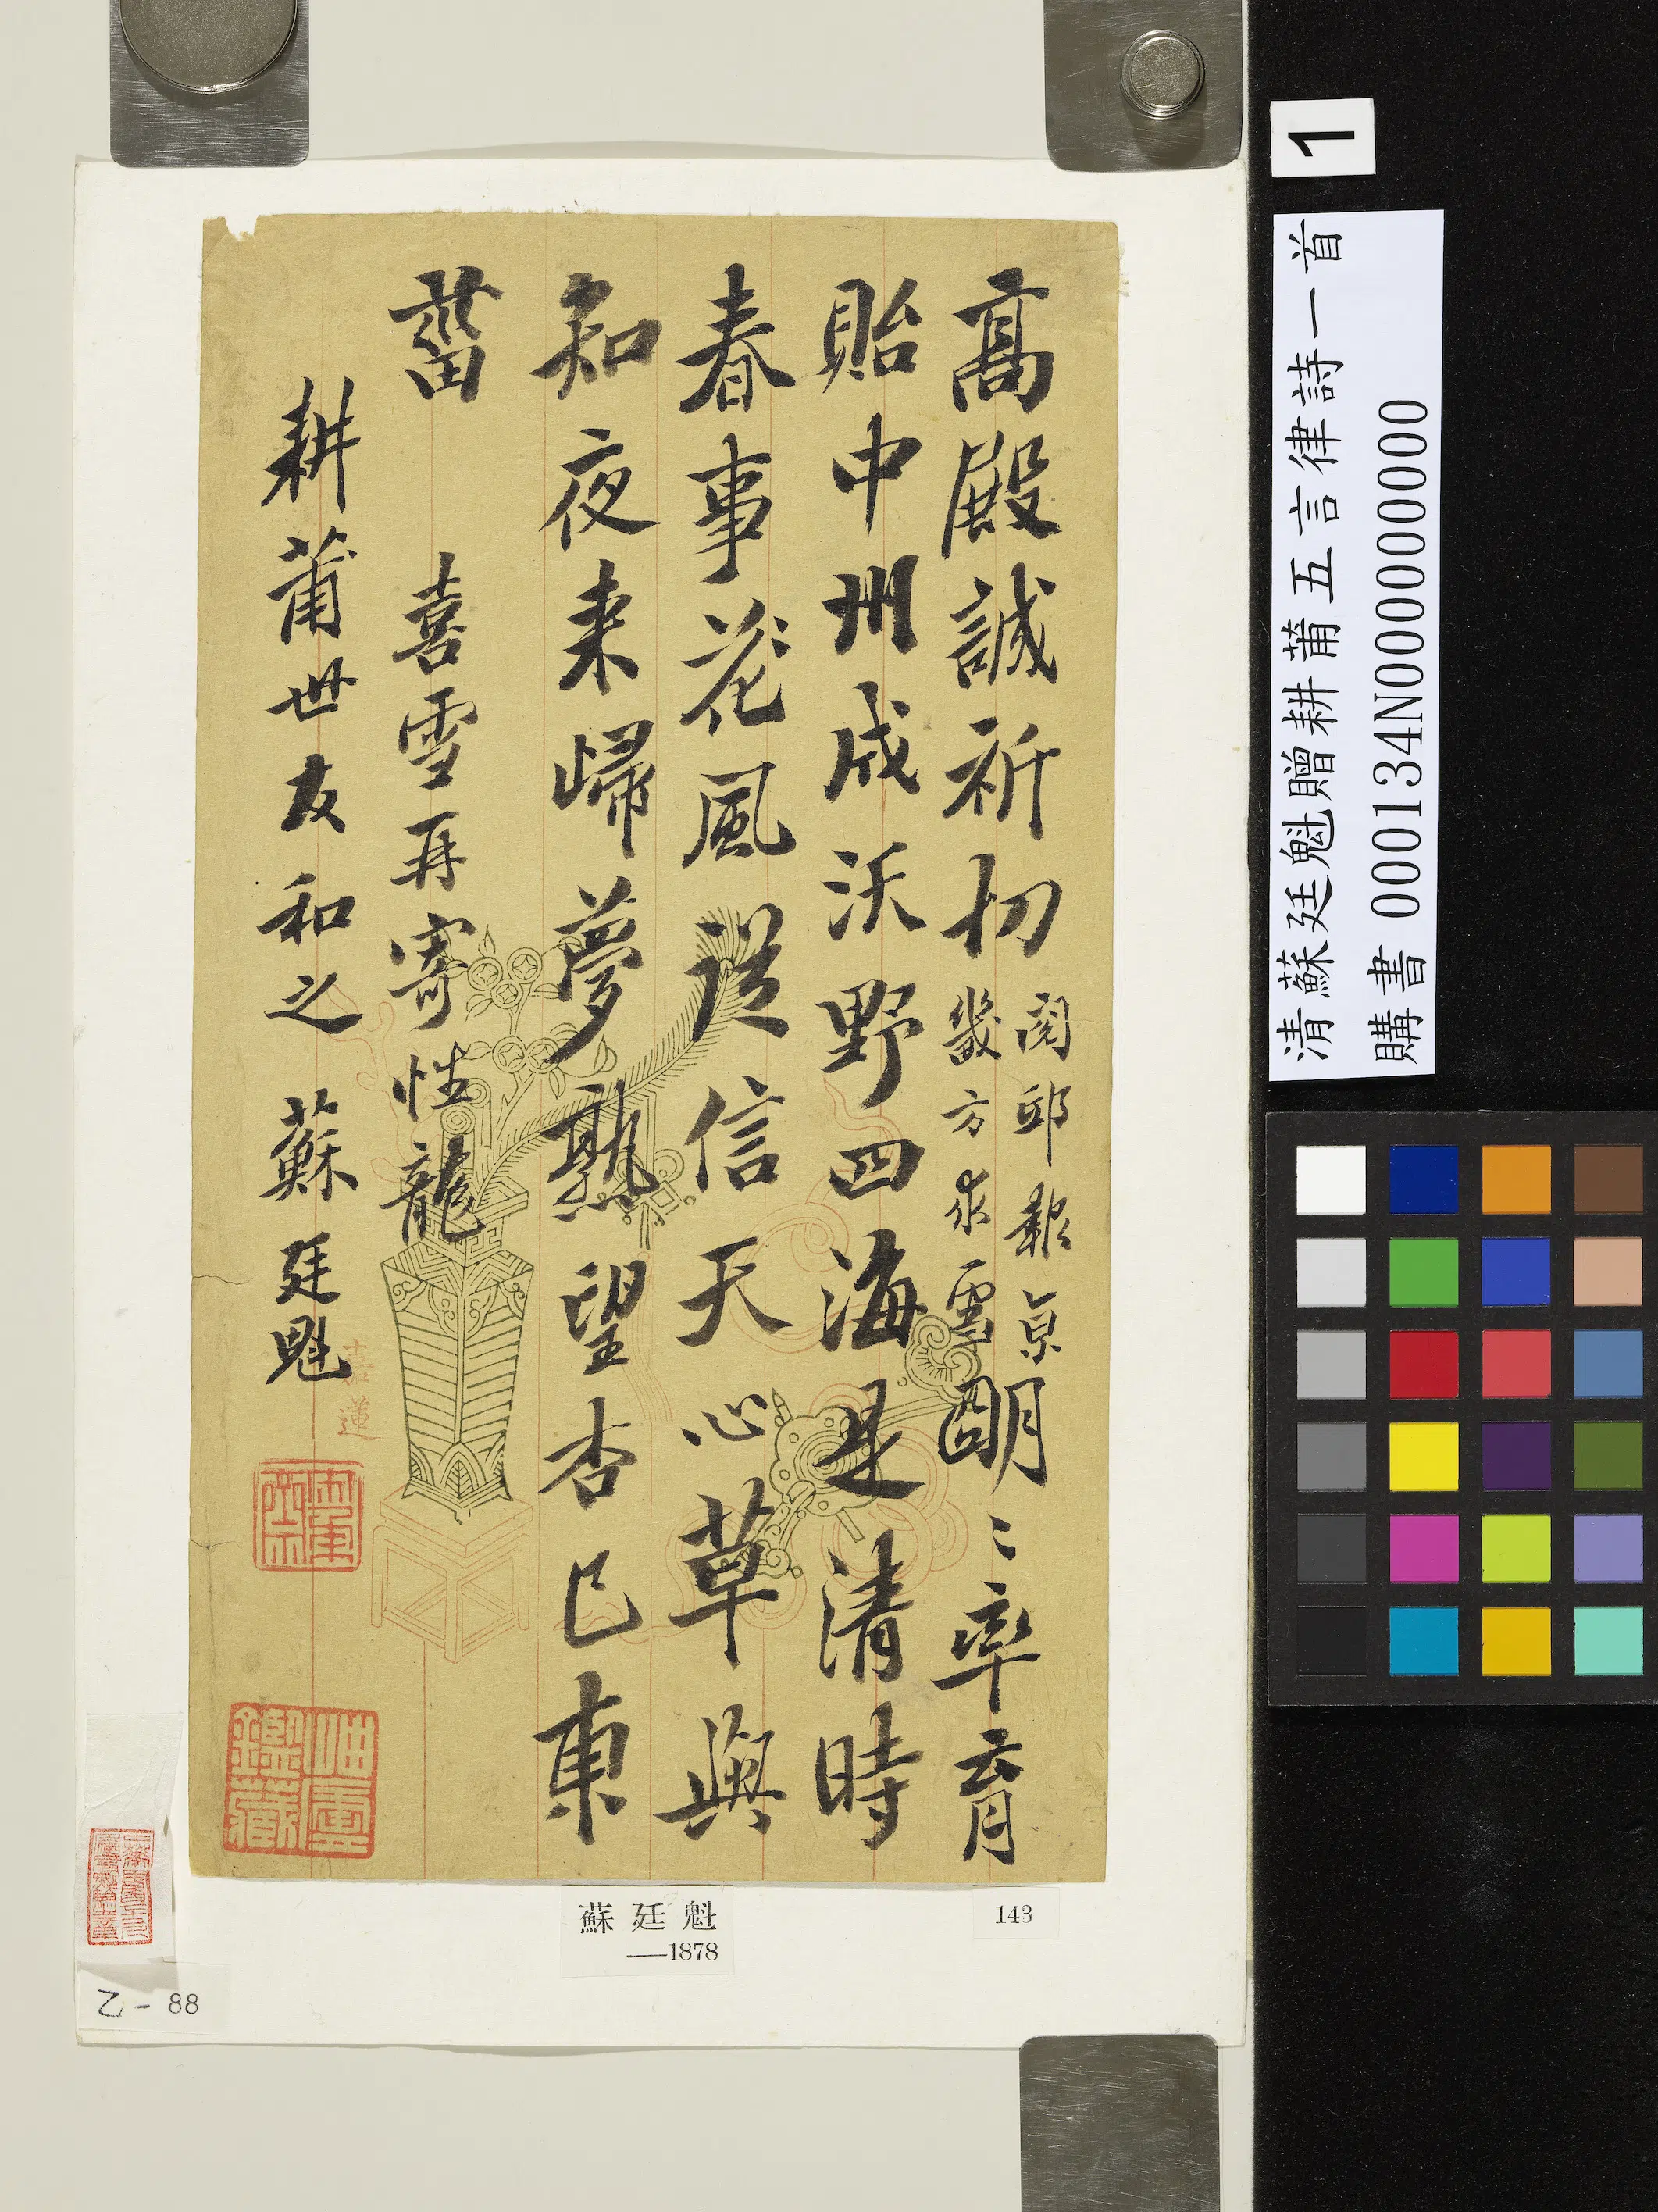 高殿誠祈切閱邸報京
畿方求雪明〻率育
貽中州成沃野四海是清時
春事花風從信天心草與
知夜來歸夢熟望杏已東
菑
喜雪再寄性龍
耕莆世友和之 蘇廷魁
嘉蓮
岫雲鑑藏
蘇廷魁
—1878
143
乙-88
1
清蘇廷魁贈耕莆五言律詩一首
購書 000134N000000000